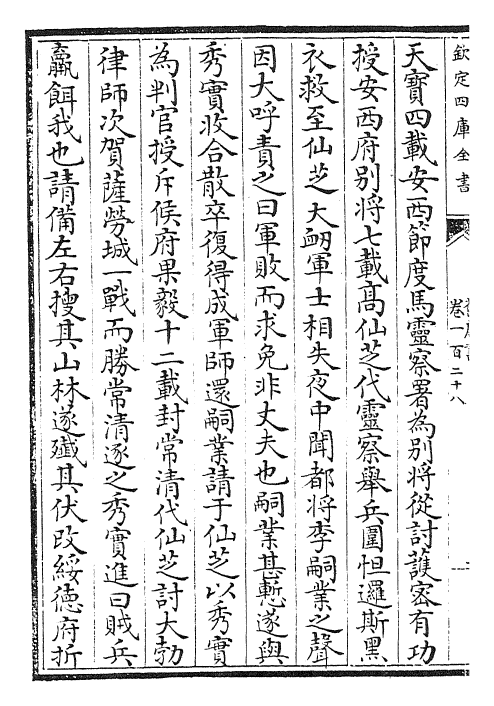 欽定四庫全書
卷一百二十八
天寶四載安西節度馬靈察署為別將從討護宻有功
授安西府別將七載髙仙芝代靈察舉兵圍怛邏斯黑
衣救至仙芝大衂軍士相失夜中聞都將李嗣業之聲
因大呼責之曰軍敗而求免非丈夫也嗣業甚慙遂與
秀實收合散卒復得成軍師還嗣業請于仙芝以秀實
為判官授斥候府果毅十二載封常清代仙芝討大勃
律師次賀薩勞城一戰而勝常清逐之秀實進曰賊兵
羸餌我也請備左右搜其山林遂殱其伏改綏徳府折